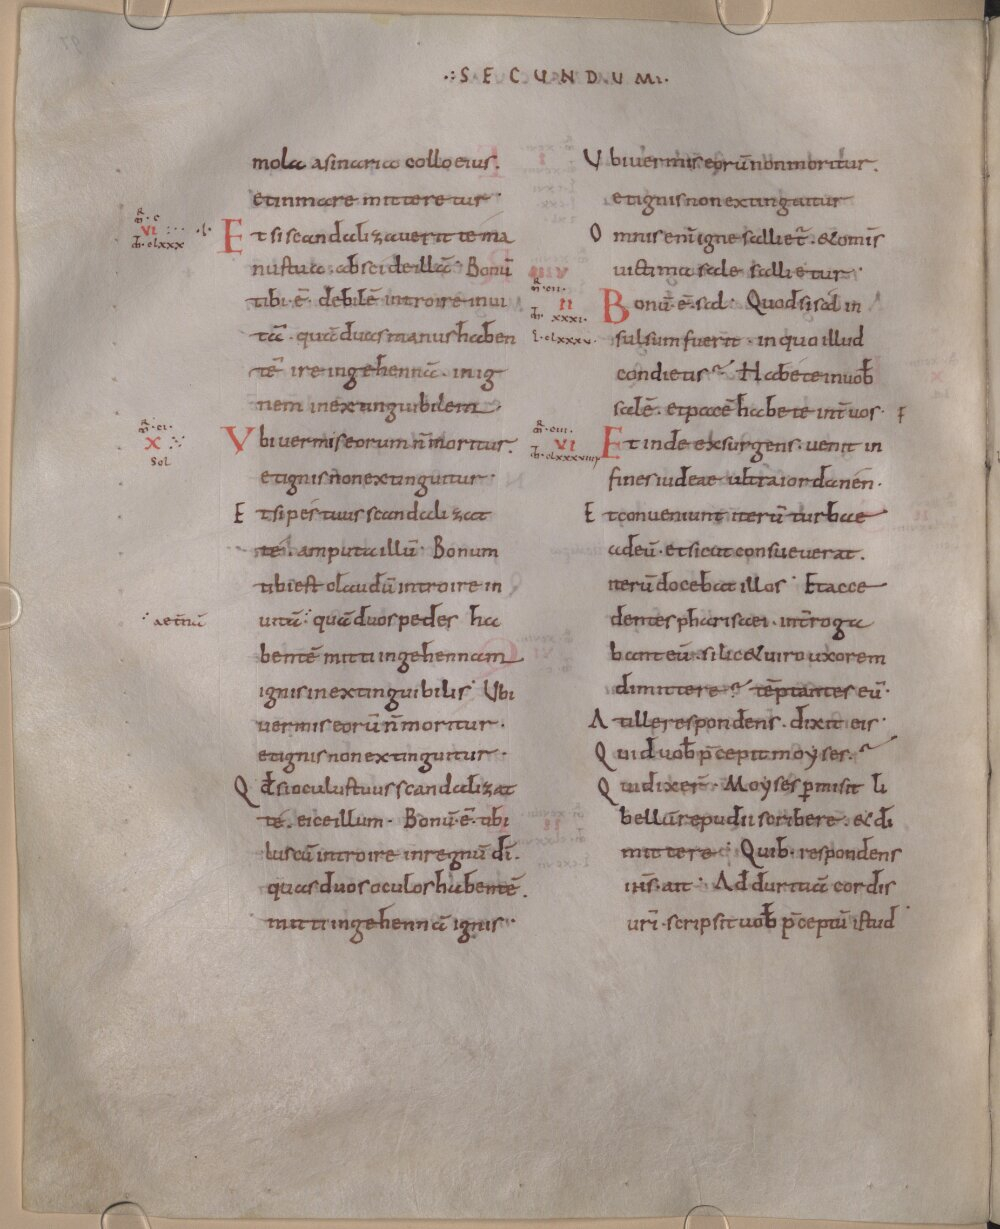 .:SECUNDUM:.
mola asinaria collo eius.
et in mare mitteretur
Et si scandalizaverit te ma
nus tua. abscide illā. Bonū
tibi·ē· debilē introire in vi
tā. quā duas manus haben
tē ire in gehennā. in ig
nem inextinguibilem.
Vbi vermis eorum ñ moritur.
et ignis non extinguitur.
Et si pes tuus scandalizat
te. amputa illū. Bonum
tibi est claudū introire in
vitā: quā duos pedes ha
bentē mitti in gehennam
ignis inextinguibilis. Vbi
vermis eorū ñ moritur.
et ignis non extinguitur.
Qđ si oculus tuus scandalizat
te. eice illum. Bonū·ē· tibi
luscū introire in regnū dī.
quā duos oculos habentē.
mitti in gehennā ignis.
Vbi vermis eorū non moritur.
et ignis non extinguitur
Omnis enī igne salliet̄. & om̄is
victima sale sallietur.
Bonū·ē·sal. Quod si sal in
sulsum fuerit. in quo illud
condietis? Habete in vob
salē. et pacē habete int̄ vos.
Et inde exsurgens. venit in
fines iudeae ultra iordanēn.
Et conveniunt iterū turbae
ad eū. et sicut consueverat.
iterū docebat illos. Et acce
dentes pharisaei. int̄roga
bant eū. si licet viro uxorem
dimittere? tēptantes eū.
At ille respondens. dixit eis.
Quid vob p̄cepit moyses?
Qui dixer̄. Moyses p̱misit li
bellū repudii scribere. & di
mittere. Quib. respondens
ihs̄. ait. Ad duritiā cordis
vr̄i. scripsit vob p̄ceptū istud
VI
clxxx
X
Sol
aet̄nā
II
xxxi.
l.clxxxv.
VI
clxxxviiii